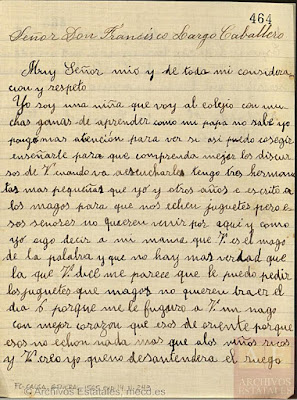 464
Señor Don Francisco Largo Caballero
Muy Señor mio y de toda mi considera
cion y respeto
Yo soy una niña que voy al colegio con mu
chas ganas de aprender como mi papa no sabe yo
pongo mas atención para ver si asi puedo cosegir
enseñarle para que comprenda mejor los discur
sos de V. cuando va a escucharle tengo tres hermani
tas mas pequeñas que yo y otros años e escrito a
los magos para que nos echen juguetes pero e
sos señores no quieren venir por aqui y como
yo oigo decir a mi mama que V. es el mago
de la palabra y que no hay mas verdad que
la que V. dice me parece que le puedo pedir
los juguetes que magos no quieren traer el
dia 6 porque me le figuro a V. un mago
con mejor corazon que esos de oriente porque
esos no echan nada mas que a los niños ricos
y V. creo yo que no desantendera el ruego
© Archivos Estatales, mecd.es
ARCHIVOS
ESTATALES